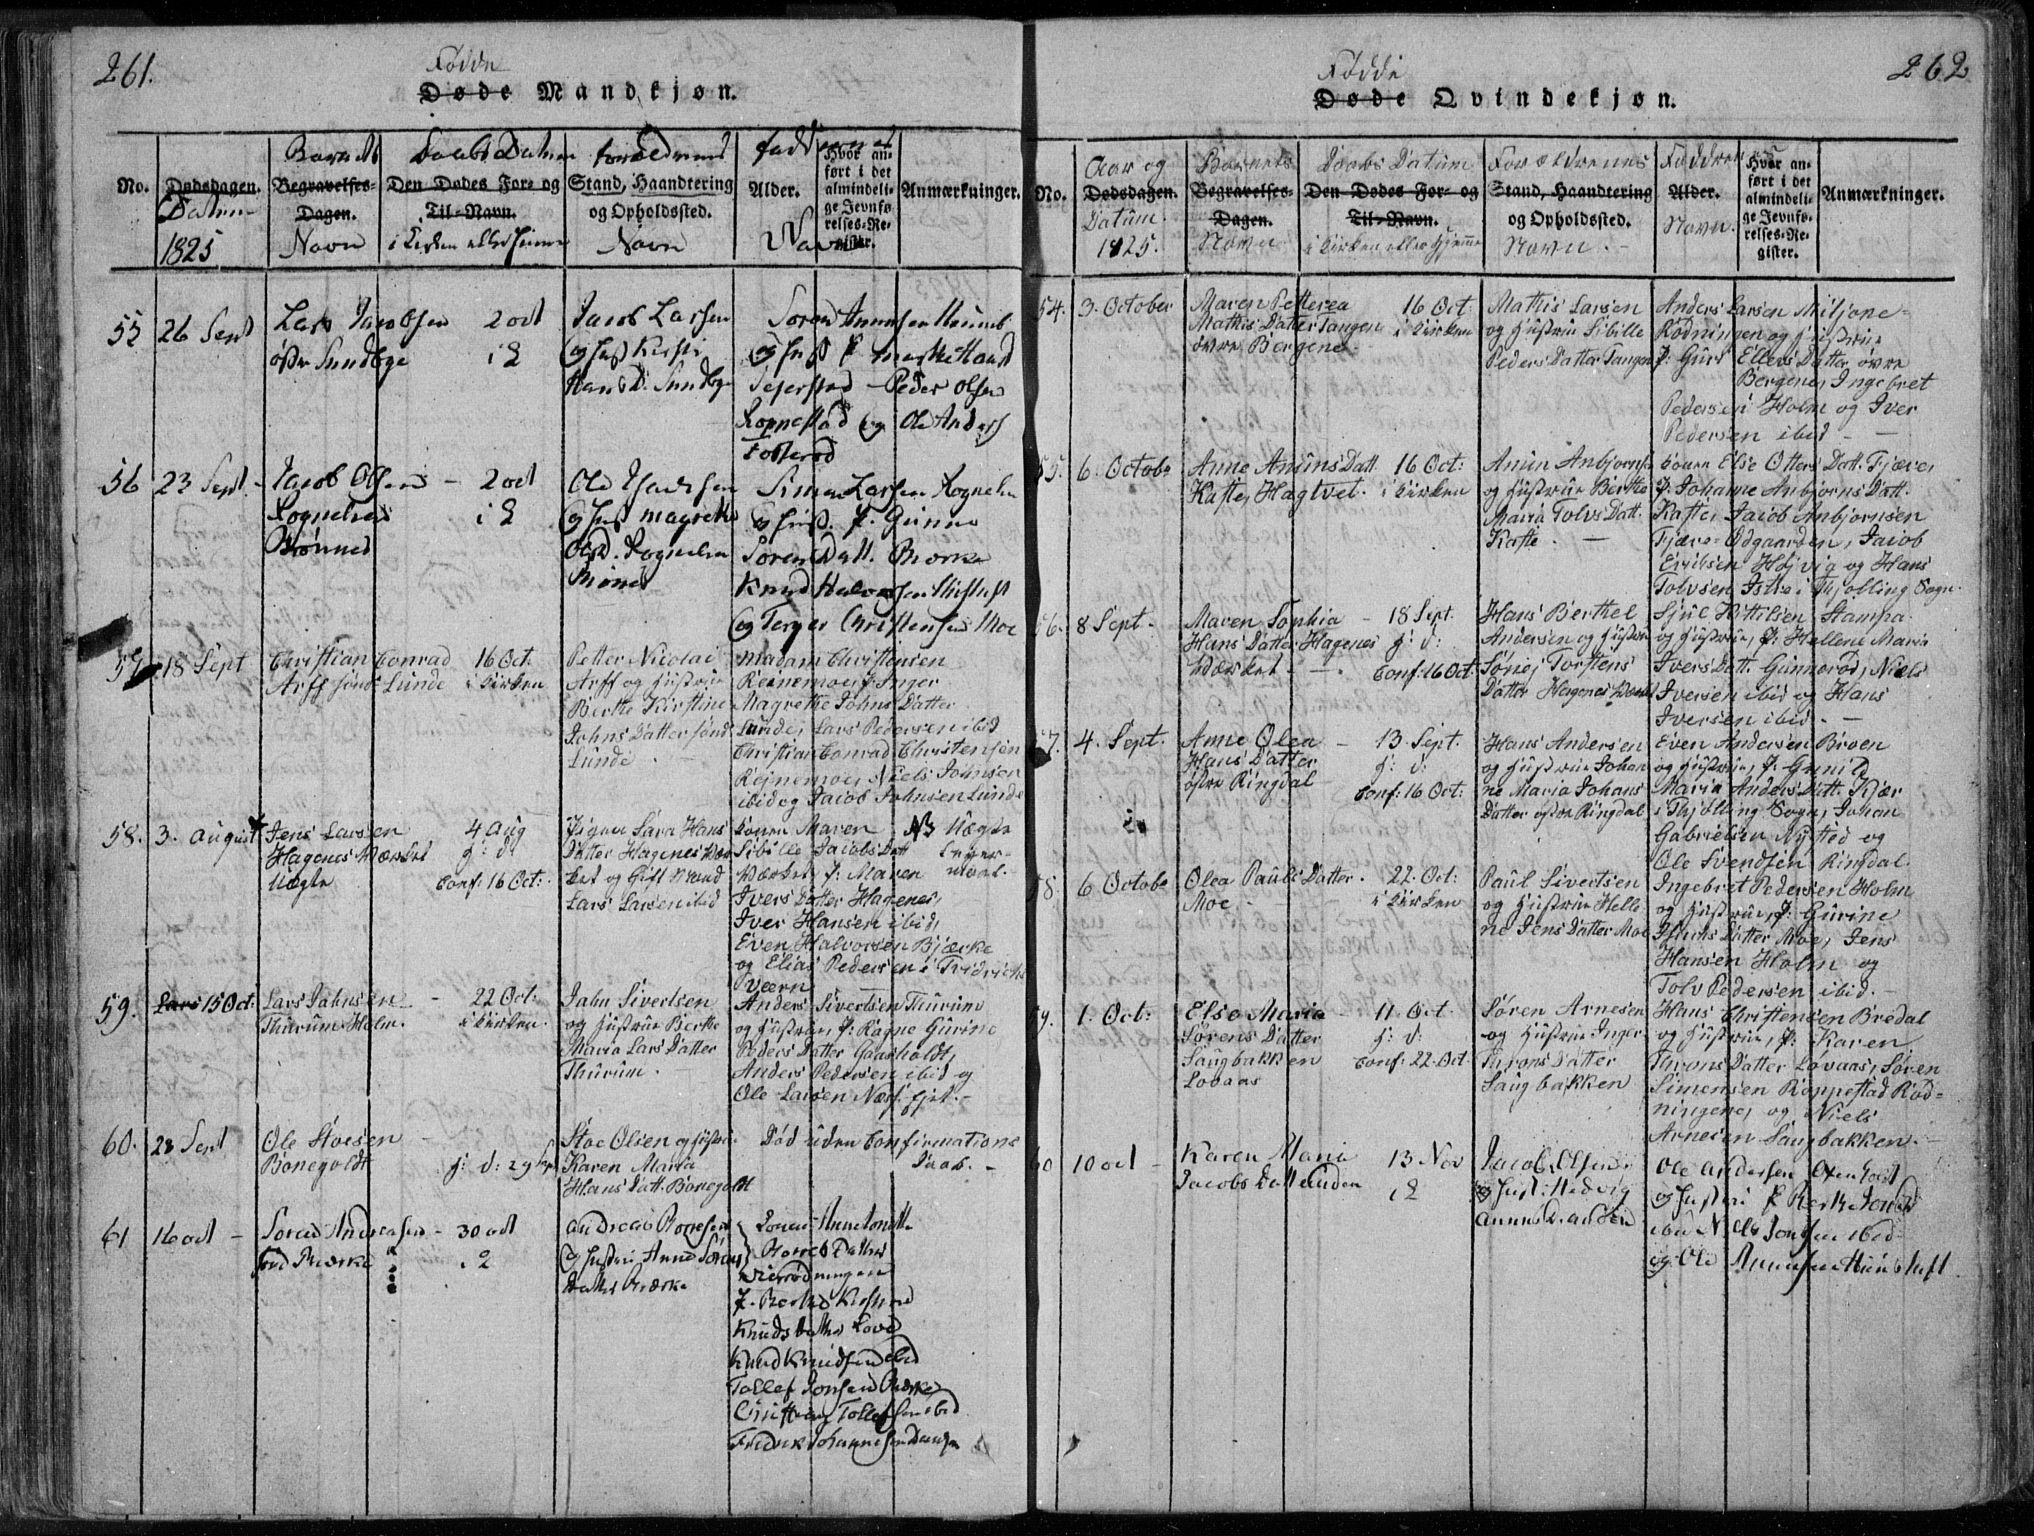 261.
Fødde
Døde Mandkjøn.
No.
Dødsdagen.
Datum
1825
Barnets
Begravelses-
Dagen.
Navn
Daabs Datum
Den Dødes For- og
Til-Navn.
i Kirken eller Hjemme
Forældrenes
Stand, Haandtering
og Opholdssted.
Navn
Faddernes
Alder.
Navne
Hvor an-
ført i det
almindeli-
ge Jevnfø
relses-Re-
gister.
Anmærkninger.
55
26 Sept
Lars Jacobsen
østre Sundbye
2 oct
i K
Jacob Larsen
og Hust Kirsti
Hans D. Sundbye
Søren
og Hust F.
Seierstad Peder Olsen
Roppestad og Ole Anders
56
23 Sept.
Jacob Olsen
2 oct
i K
og Hust Magrethe
Simen Larsen
og Hust. F. Gunne
Sørens Datt. Bierke
Knud Halvorsen
og Terger Christensen Moe
57
18 Sept
Christian Conrad
Arff sønd Lunde
16 Oct.
i Kirken
Petter Nicolai
Arff og Hustrue
Berthe Kirstine
Johns Datter sønd
Lunde.
Madam Christensen
Reinemoe, F. Inger
Magrethe Johns Datter
Lunde, Lars Pedersen ibid
Christian Conrad Christensen
Rejnemoe, Niels Johnsen
ibid og Jacob Johnsen Lunde
58.
3. August
Jens Larsen
Hagenes Værket
Uægte
4 Aug
H: D:
Conf. 16 Oct:
Pigen Sara Hans
Datter Hagenes Vær
ket og Gift Mand
Lars Larsen ibid
Konen Maren
Sibille Jacobs Datt
Værket, F: Maren
Ivers Datter Hagenes,
Iver Hansen ibid,
Even Halvorsen Bjærke
og Elias Pedersen i Fridrichs
Værn
NB Uægte
Leier-
maal.
59.
Lars 15 Oct:
Lars Jahnsen
Thurum Holm.
22 Oct:
i Kirken.
Jahn Sivertsen
og Hustrue Berthe
Maria Lars Datter
Thurum.
Anders Sivertsen Thurum
og Hustrue, F: Ragne Gurine
Peders Datter Gaasholdt,
Anders Pedersen ibid og
Ole Larsen Næs Ejet.
60.
28 Sept
Ole Stoesen
Bonegoldt
H: D: 29 Sept
Stoe Olsen og Hustrue
Karen Maria
Hans Datt. Bonegoldt
Død uden Confirmations
Daab.
61
16 oct
Søren Andreasen
30 oct
i K
Andreas
og Hustru Anne Sørens
Datter Bierke
F. Berthe Kirstine
Knuds Datter
Knud Knudsen ibid
Tollef Jonsen Bierke
Christian Tollefsen ibid
262
Fødde
Døde Qvindekjøn.
No.
Aar og
Dødsdagen.
Datum.
1825.
Barnets
Begravelses-
Dagen.
Navn
Daabs Datum
Den Dødes For- og
Til-Navn.
i Kirken eller Hjemme
Forældrenes
Stand, Haandtering
og Opholdssted.
Navn.
Faddrenes
Alder.
Navn.
Hvor an-
ført i det
almindeli-
ge Jevnfø-
relses-Re-
gister.
Anmærkninger.
54.
3. October
Maren Petterea
Mathis Datter Tangen
øvre Bergene
16 Oct
i Kirken
Mathis Larsen
og Hustrue Sibille
Peders Datter Tangen
Anders Larsen Miljone-
Rødningen og Hustrue
F: Guri Ellevs Datter øvre
Bergene, Ingebret
Pedersen Holm og Iver
Pedersen ibid
55.
6. Octobr
Anne Anuns Datt.
Kaste, Hagtvet.
16 Oct:
i Kirken
Anun Anbjørns
og Hustrue Berthe
Maria Tolvs Datt.
Kaste.
Konen Else Otters Datt. Fjære,
F: Johanne Anbjørns Datt.
Kaste, Jacob Anbjørnsen
Fjære-Odgaarden, Jacob
Erichsen Højvig og Hans
Tolvsen Istre i Thjølling Sogn.
56.
8 Sept.
Maren Sophia
Hans Datter Hagenes
Værket
18 Sept.
H: D:
Conf: 16 Oct.
Hans Berthel
Andersen og Hustrue
Søne, Torstens
Datter Hagenes Værket
Gjul Kittilsen Stampa
og Hustrue, F: Hellene Maria
Ivers Datt. Gunnerød, Niels
Iversen ibid og Hans
Iversen ibid.
57.
4. Sept.
Anne Olea
Hans Datter
østre Ringdal
13 Sept.
H: D:
Conf: 16 Oct:
Hans Andersen
og Hustrue Johan
ne Maria Johans
Datter østre Ringdal
Even Andersen Broen
og Hustrue, F: Gunild
Maria Anders Datt. Kjær
i Thjølling Sogn, Johan
Gabrielsen Nysted og
Ole Svendsen Ringdal.
58.
6 Octobr
Olea Pauls Datter.
Moe
22. Oct:
i Kirken
Paul Sivertsen
og Hustrue Helle
ne Jens Datter Moe
Ingebret Pedersen Holm
og Hustrue, F: Gurine
Pauls Datter Moe, Jens
Hansen Holm og
Tolv Pedersen ibid.
59.
1. Oct:
Else Maria
Sørens Datter
Saugbakken
Lovaas
11 Oct.
H: D:
Conf: 22. Oct
Søren Arnesen
og Hustrue Inger
Tarons Datter
Saugbakken
Hans Christensen Bredal
og Hustrue, F: Karen
Tarons Datter Lovaas, Søren
Simensen Roppestad Rød-
ningene, og Niels
Arnesen Saugbakken.
60
10 oct
Karen Maria
Jacobs Datt Linden
13 Nov
i K
Jacob Olsen
og Hust: Hedvig
Ole Andersen
og Hustru F
ibid Niels Jonsen ibid
og Ole